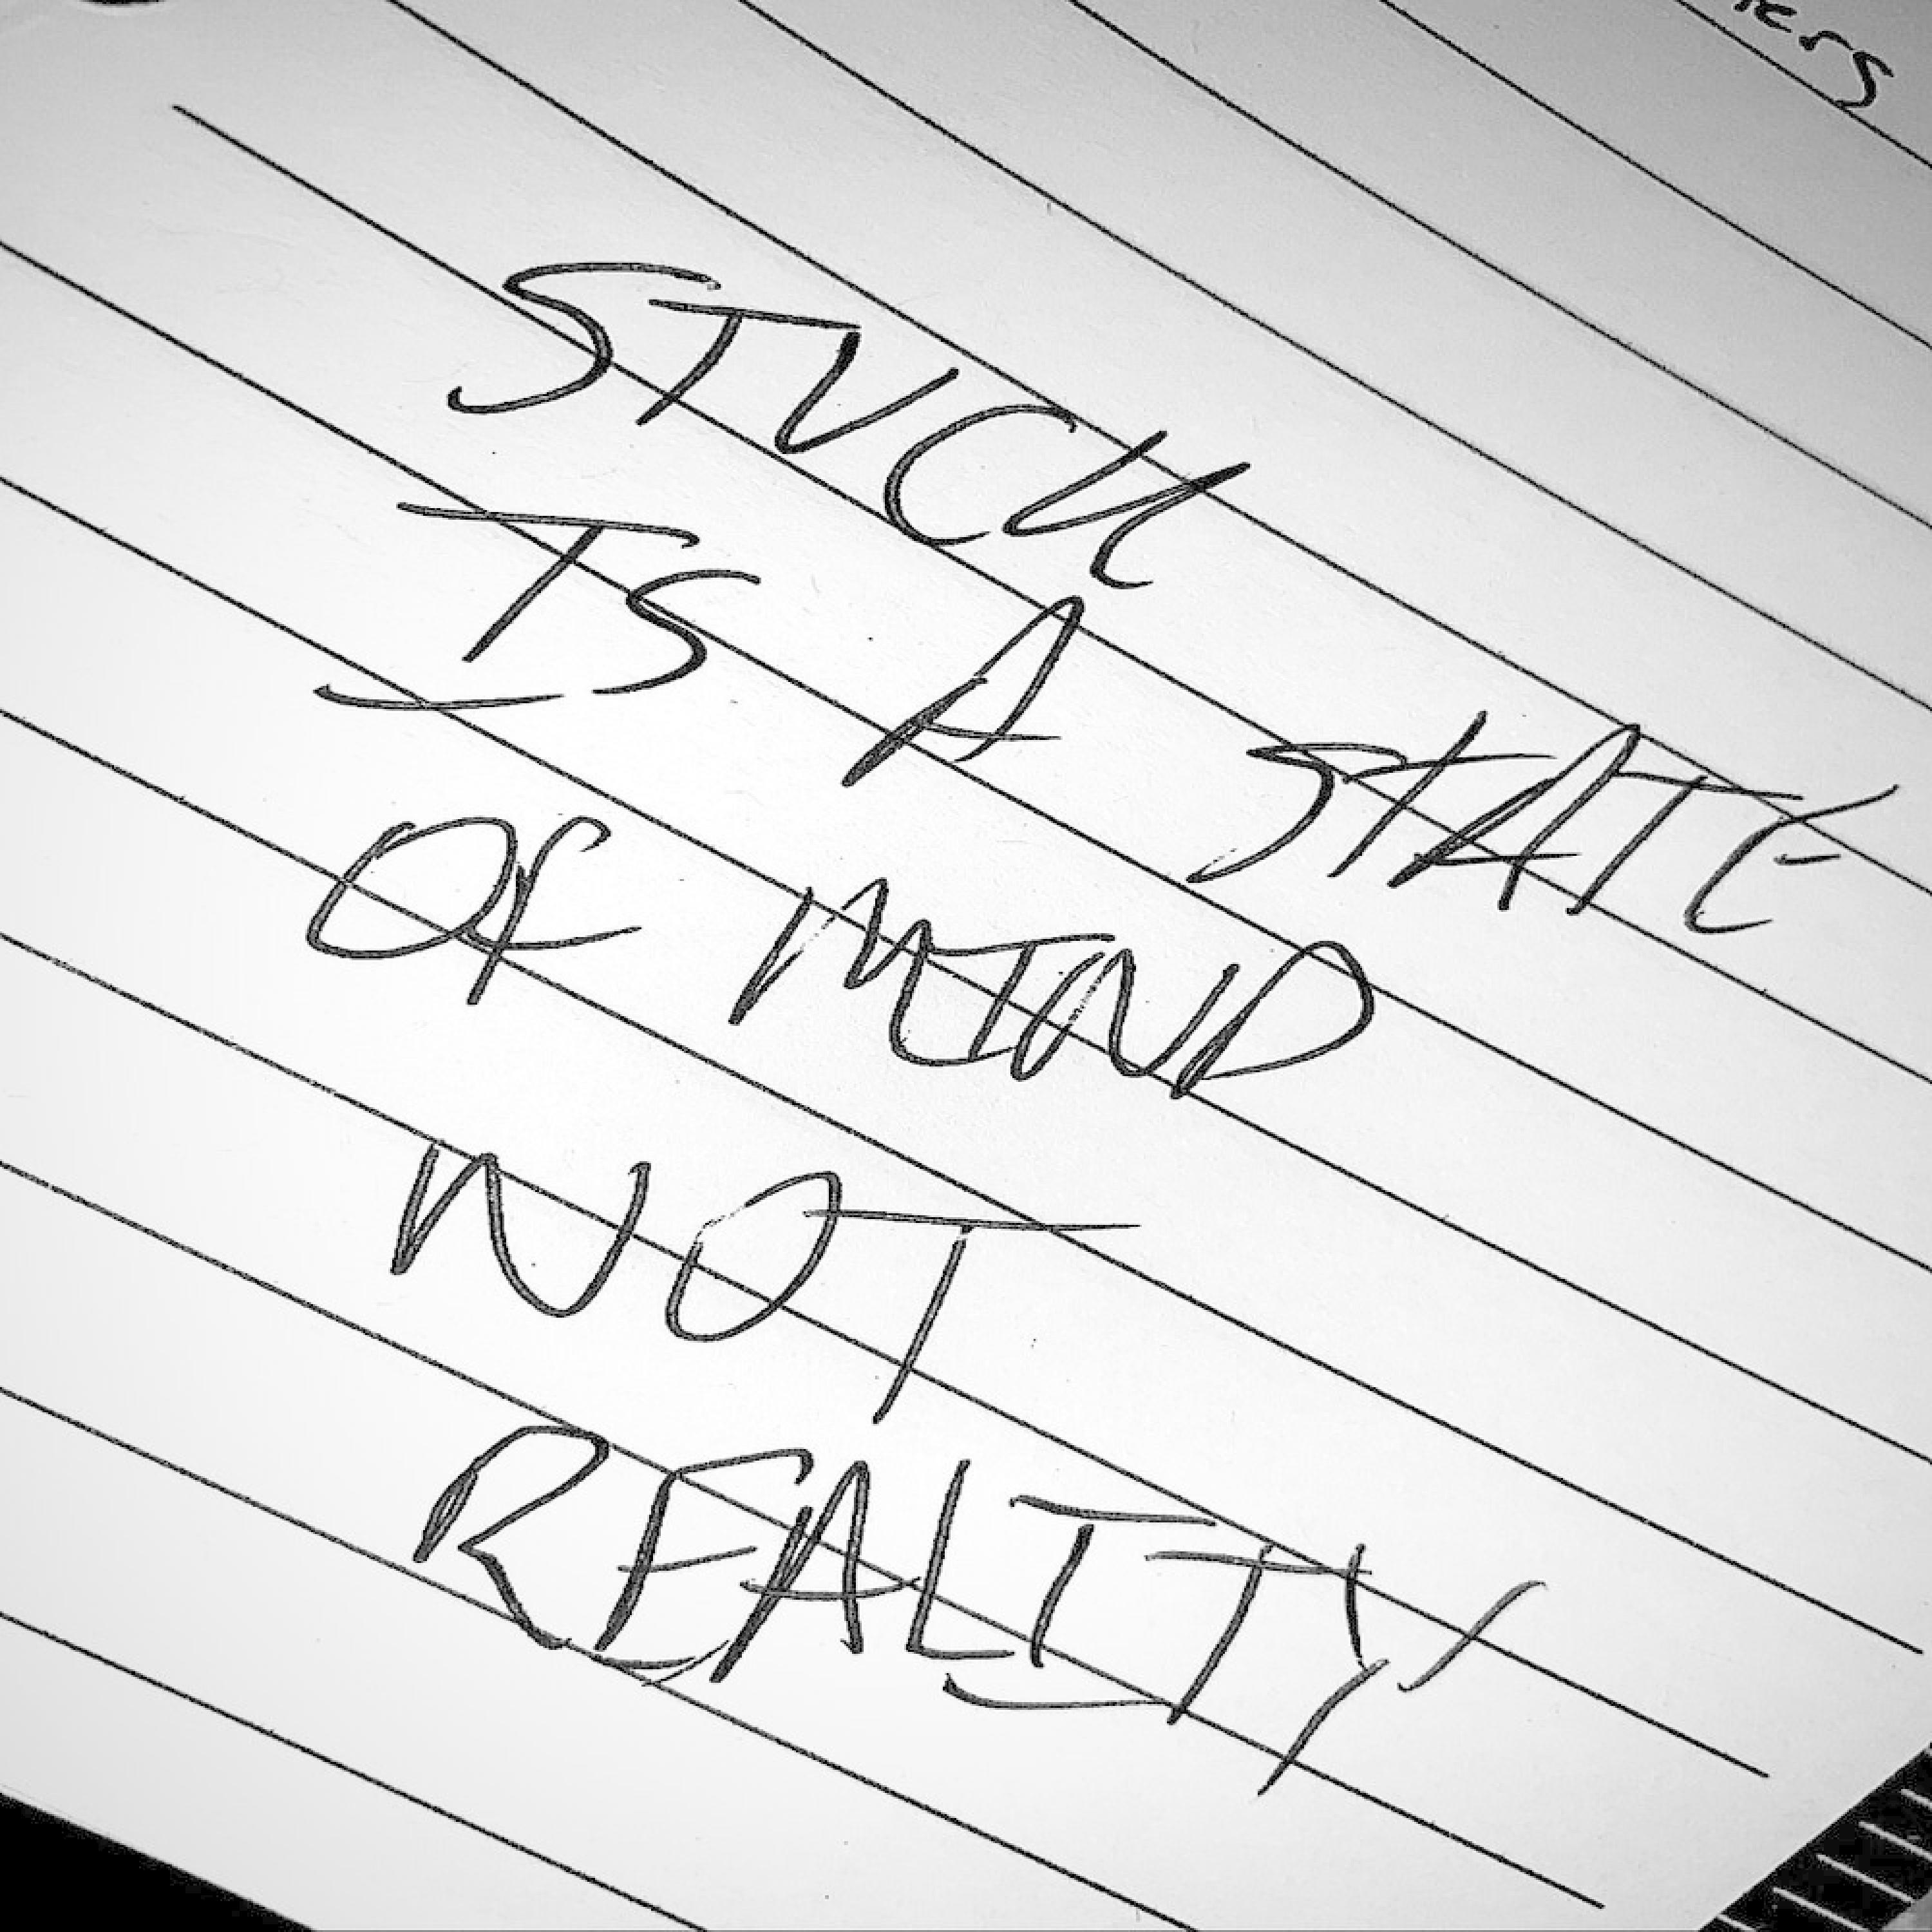 STUCK
IS A STATE
OF MIND
NOT
REALITY